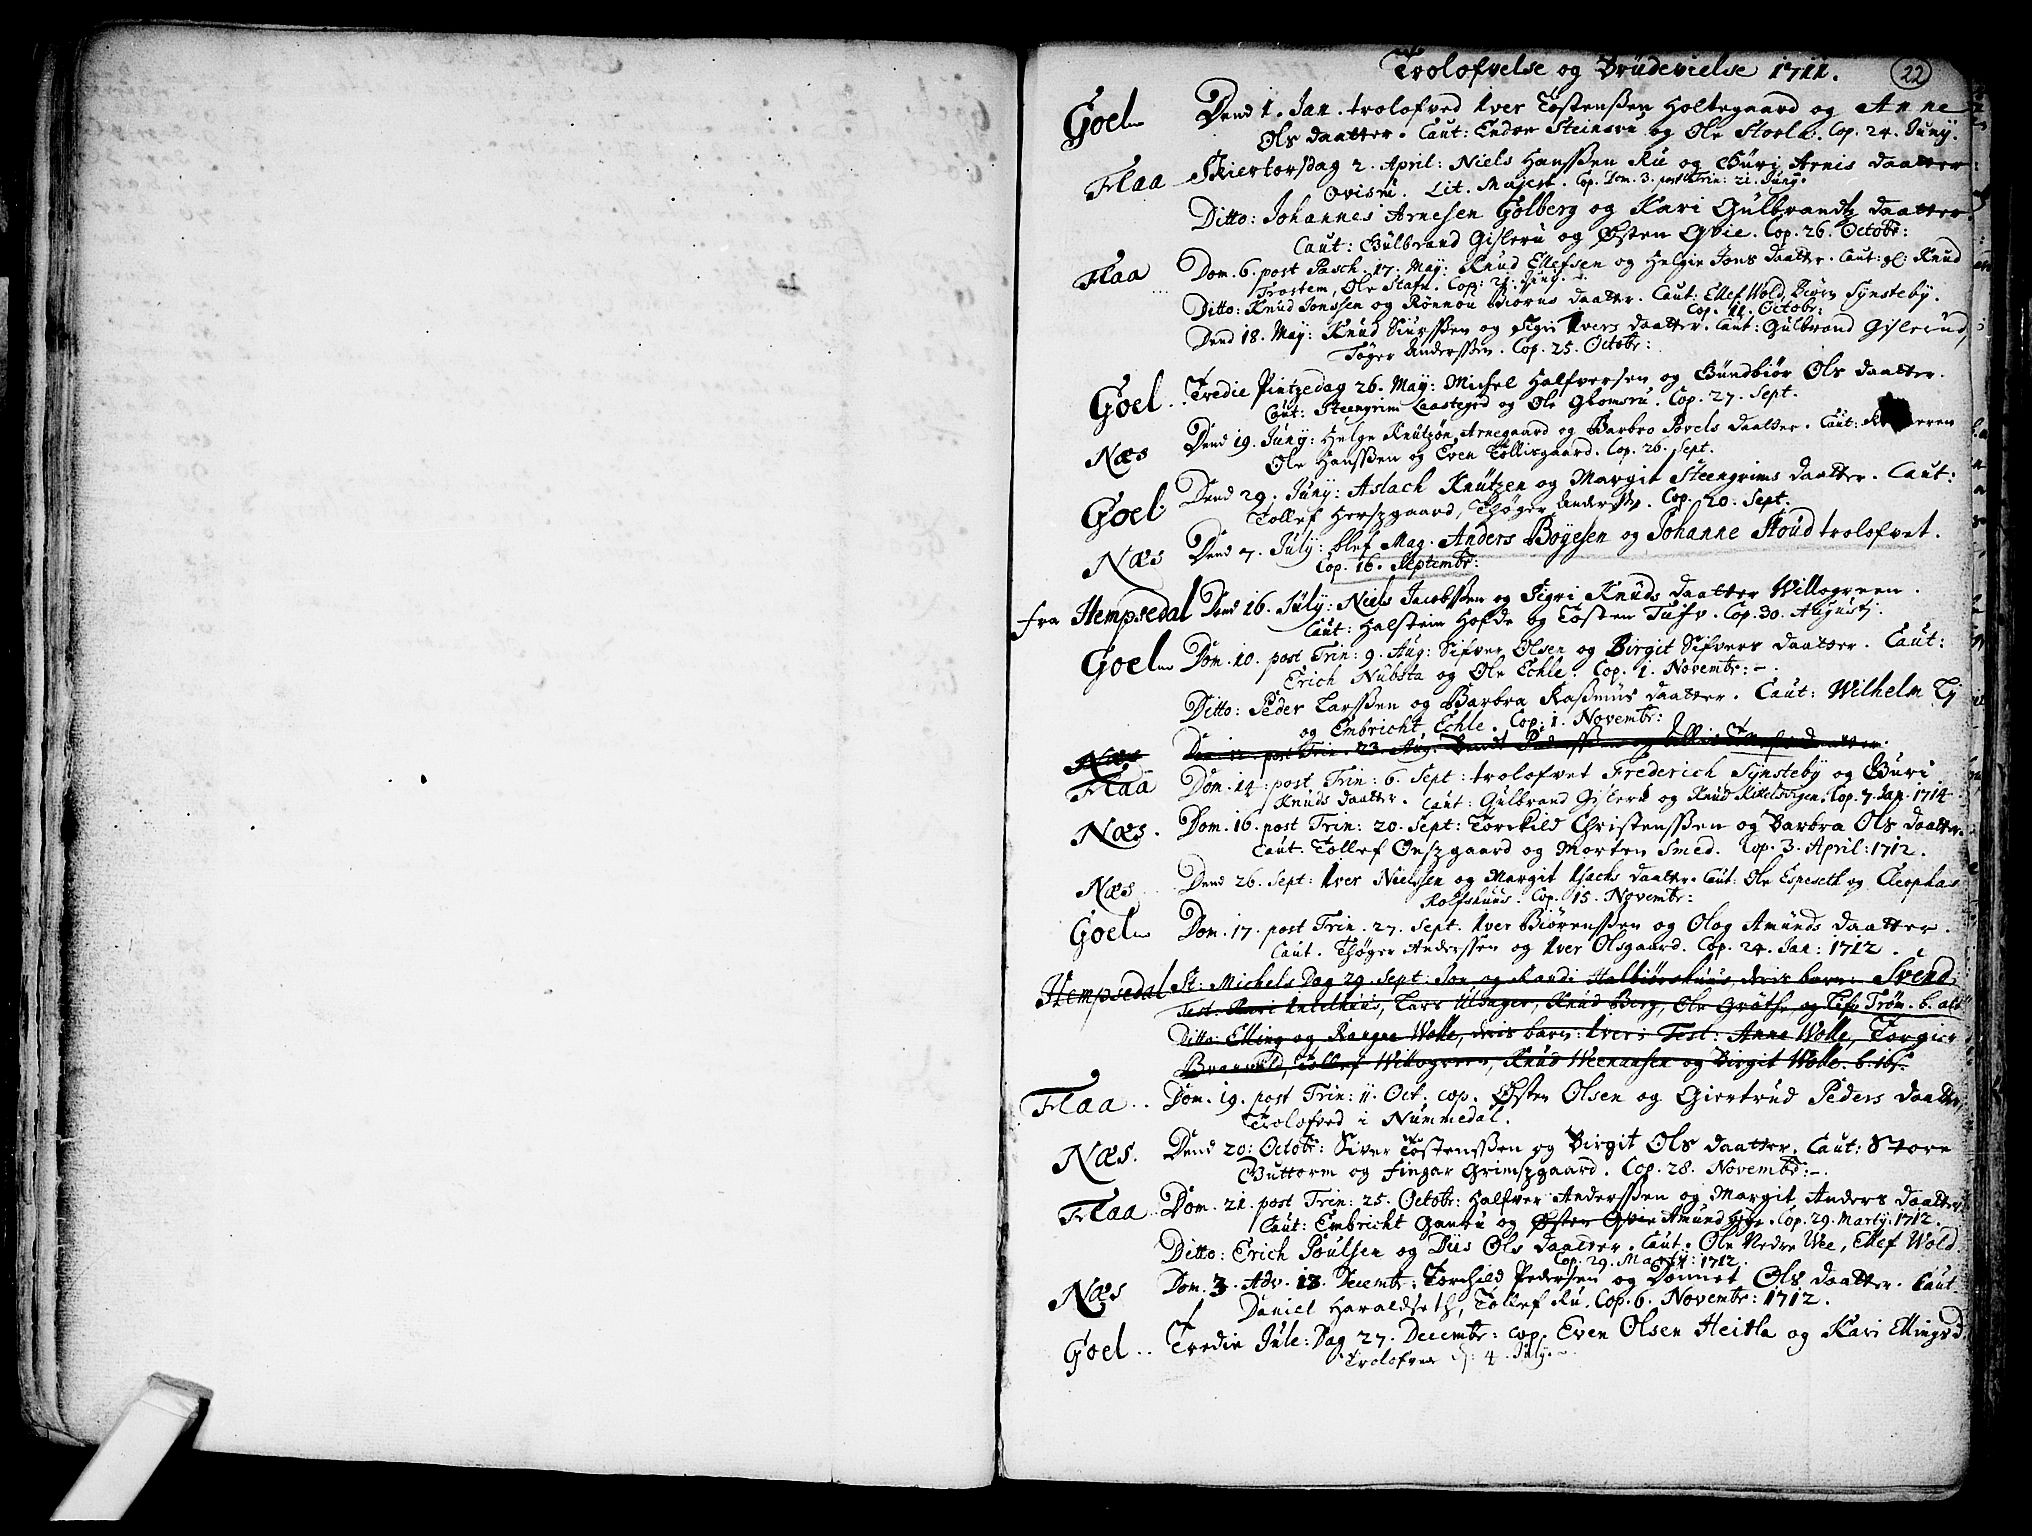 Trolofvelse og Brudevielse 1711.
22
Goel Dend 1. Jan. trolofved Iver Tostenssen Holtegaard og Anne
Ols daatter. Caut: Endre Steinsru og Ole Stoelk. Cop. 24. Junij.
Flaa Skiertorsdag 2. April: Niels Hanssen Ru og Guri Arnis daatter
Ovisru. Lit. Majest. Cop. Dom. 3. post Trin: 21. Junij.
Ditto: Johannes Arnesen Golberg og Kari Gulbrands daatter.
Caut: Gulbrand Gisleru og Østen Qvie. Cop. 26. Octobr:
Flaa Dom. 6. post Pasch. 17. May: Knud Ellefsen og Helgie Jons daatter. Caut: Knud
Trostem, Ole Stafn. Cop: 21. Junij.
Ditto: Knud Jonssen og Rønnou Biørns daatter. Caut: Ellef Wold, Biørn Synsteby.
Cop. 11. Octobr:
Dend 18. May: Knud Siurssen og Sigri Ivers daatter. Caut: Gulbrand Gislerud,
Tøger Anderssen. Cop. 25. Octobr:
Goel. Tredie Pintzedag 26. May: Michel Halfversen og Gundbiør Ols daatter.
Caut: Steengrim Laastegrd og Ole Glomsru. Cop. 27. Sept.
Næs Dend 19. Junij: Helge Knutzøn Arnegaard og Barbro Povels daatter. Caut:
Ole Hanssen og Even Tollisgaard. Cop. 26. Sept.
Goel Dend 29. Junij: Aslach Knutzen og Margit Steengrims daatter. Caut:
Tollef Herszgaard, Thøger Anderss. Cop. 20. Sept.
Næs Dend 7. July: blef Mag. Anders Bøyesen og Johanne Stoud trolofvet.
Cop. 16. Septembr:
fra Hempsedal Dend 16. July: Niels Jacobssen og Sigri Knuds daatter Willogreen.
Caut: Halstein Hofde og Tosten Tufv. Cop. 30. Augustj.
Goel Dom. 10. post Trin: 9. Aug: Sifver Olsen og Birgit Sifvers daatter. Caut:
Erich Nubsta og Ole Echle. Cop. 1. Novembr:
Ditto: Peder Larssen og Barbra Rasmus daatter. Caut: Wilhelm Ly
og Embricht Echle. Cop: 1. Novembr:
Næs Dom. 12. post Trin. 23. Aug: Bendt Pederssen og daatter.
Flaa Dom. 14. post Trin: 6. Sept: trolofvet Frederich Synsteby og Guri
Knuds daatter. Caut: Gulbrand Gisleru og Knud Kittelsvigen. Cop. 7. Jan. 1714.
Næs. Dom. 16. post Trin: 20. Sept: Torckild Christenssen og Barbra Ols daatter.
Caut: Tollef Onszgaard og Morten Smed. Cop. 3. April: 1712.
Næs Dend 26. Sept: Iver Nielssen og Margit Isachs daatter. Caut: Ole Espeseth og Cleophas
Rolfshuus. Cop. 15. Novembr:
Goel Dom. 17. post Trin. 27. Sept. Iver Biørenssen og Olog Amunds daatter.
Caut. Thøger Anderssen og Iver Olsgaard. Cop. 24. Jan: 1712.
Hempsedal St: Michels Dag 29. Sept: Jon og Randi Halbiørshuus deris barn: Svend
Test. Kari Intelhuus, Lars Ulsager, Knud Berg, Ole Grøthe og Trøm. b. ald
Ditto: Elling og Rangne Wolle, deris barn: Iver: Test: Anne Wolle, Torgier
Tollef Willogreen, Knud Weenansen og Birgit Wolle. b. ibt.
Flaa Dom. 19. post Trin: 11. Oct. cop. Østen Olsen og Giertrud Peders daatter,
Trolofved i Nummedal.
Næs. Dend 20: Octobr: Siver Tostenssen og Birgit Ols daatter. Caut: Store
Guttorm og Fingar Grimszgaard. Cop. 28. Novembr:
Flaa Dom. 21. post Trin: 25. Octobr: Halfver Anderssen og Margit Anders daatter
Caut: Embricht Gauru og Østen Qvie Amund Cop. 29. Martij. 1712.
Ditto: Erich Poulsen og Diis Ols daatter. Caut. Ole Nedre Wee, Ellef Wold.
Cop: 29. Martij: 1712.
Næs Dom. 3. Adv. 13. Decembr: Torchild Pedersen og Donnet Ols daatter. Caut
Daniel Haraldseth, Tollef Ru. Cop. 6. Novembr: 1712.
Goel Tredie Jule-Dag 27. Decembr: cop. Even Olsen Heitla og Kari Ellingsd.
Trolofved 4. July.